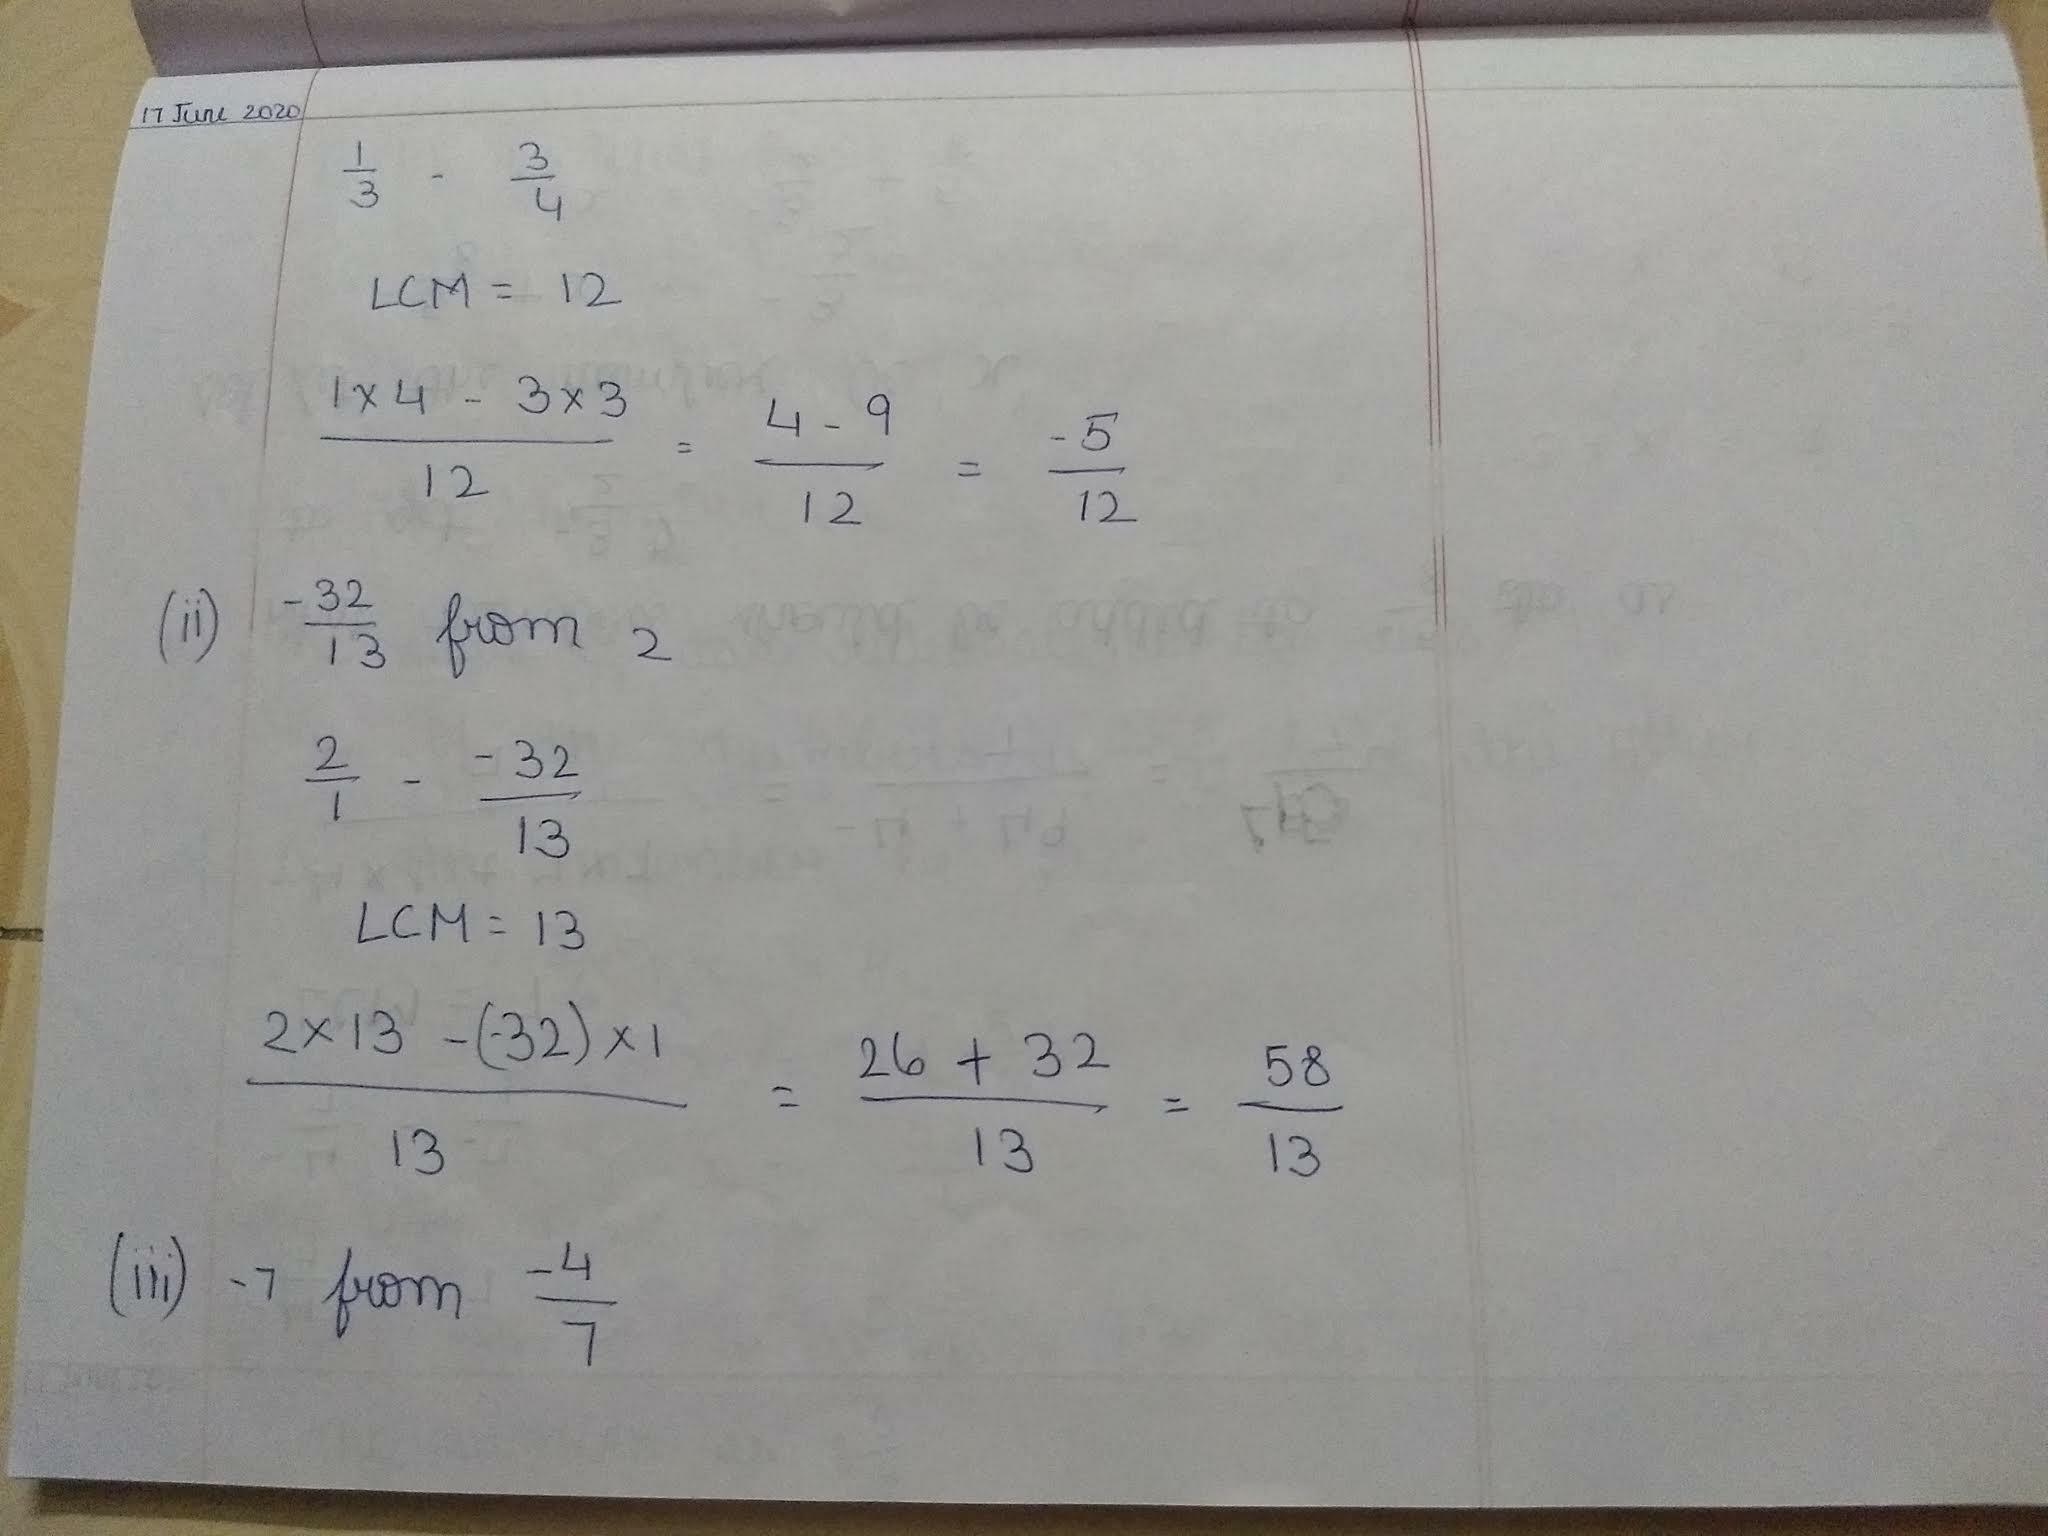 17 June 2020
1/3 - 3/4
LCM = 12
1×4 - 3×3 / 12 = 4-9 / 12 = -5 / 12
(ii) -32/13 from 2
2/1 - -32/13
LCM = 13
2×13 -(-32)×1 / 13 = 26 + 32 / 13 = 58 / 13
(iii) -7 from -4/7